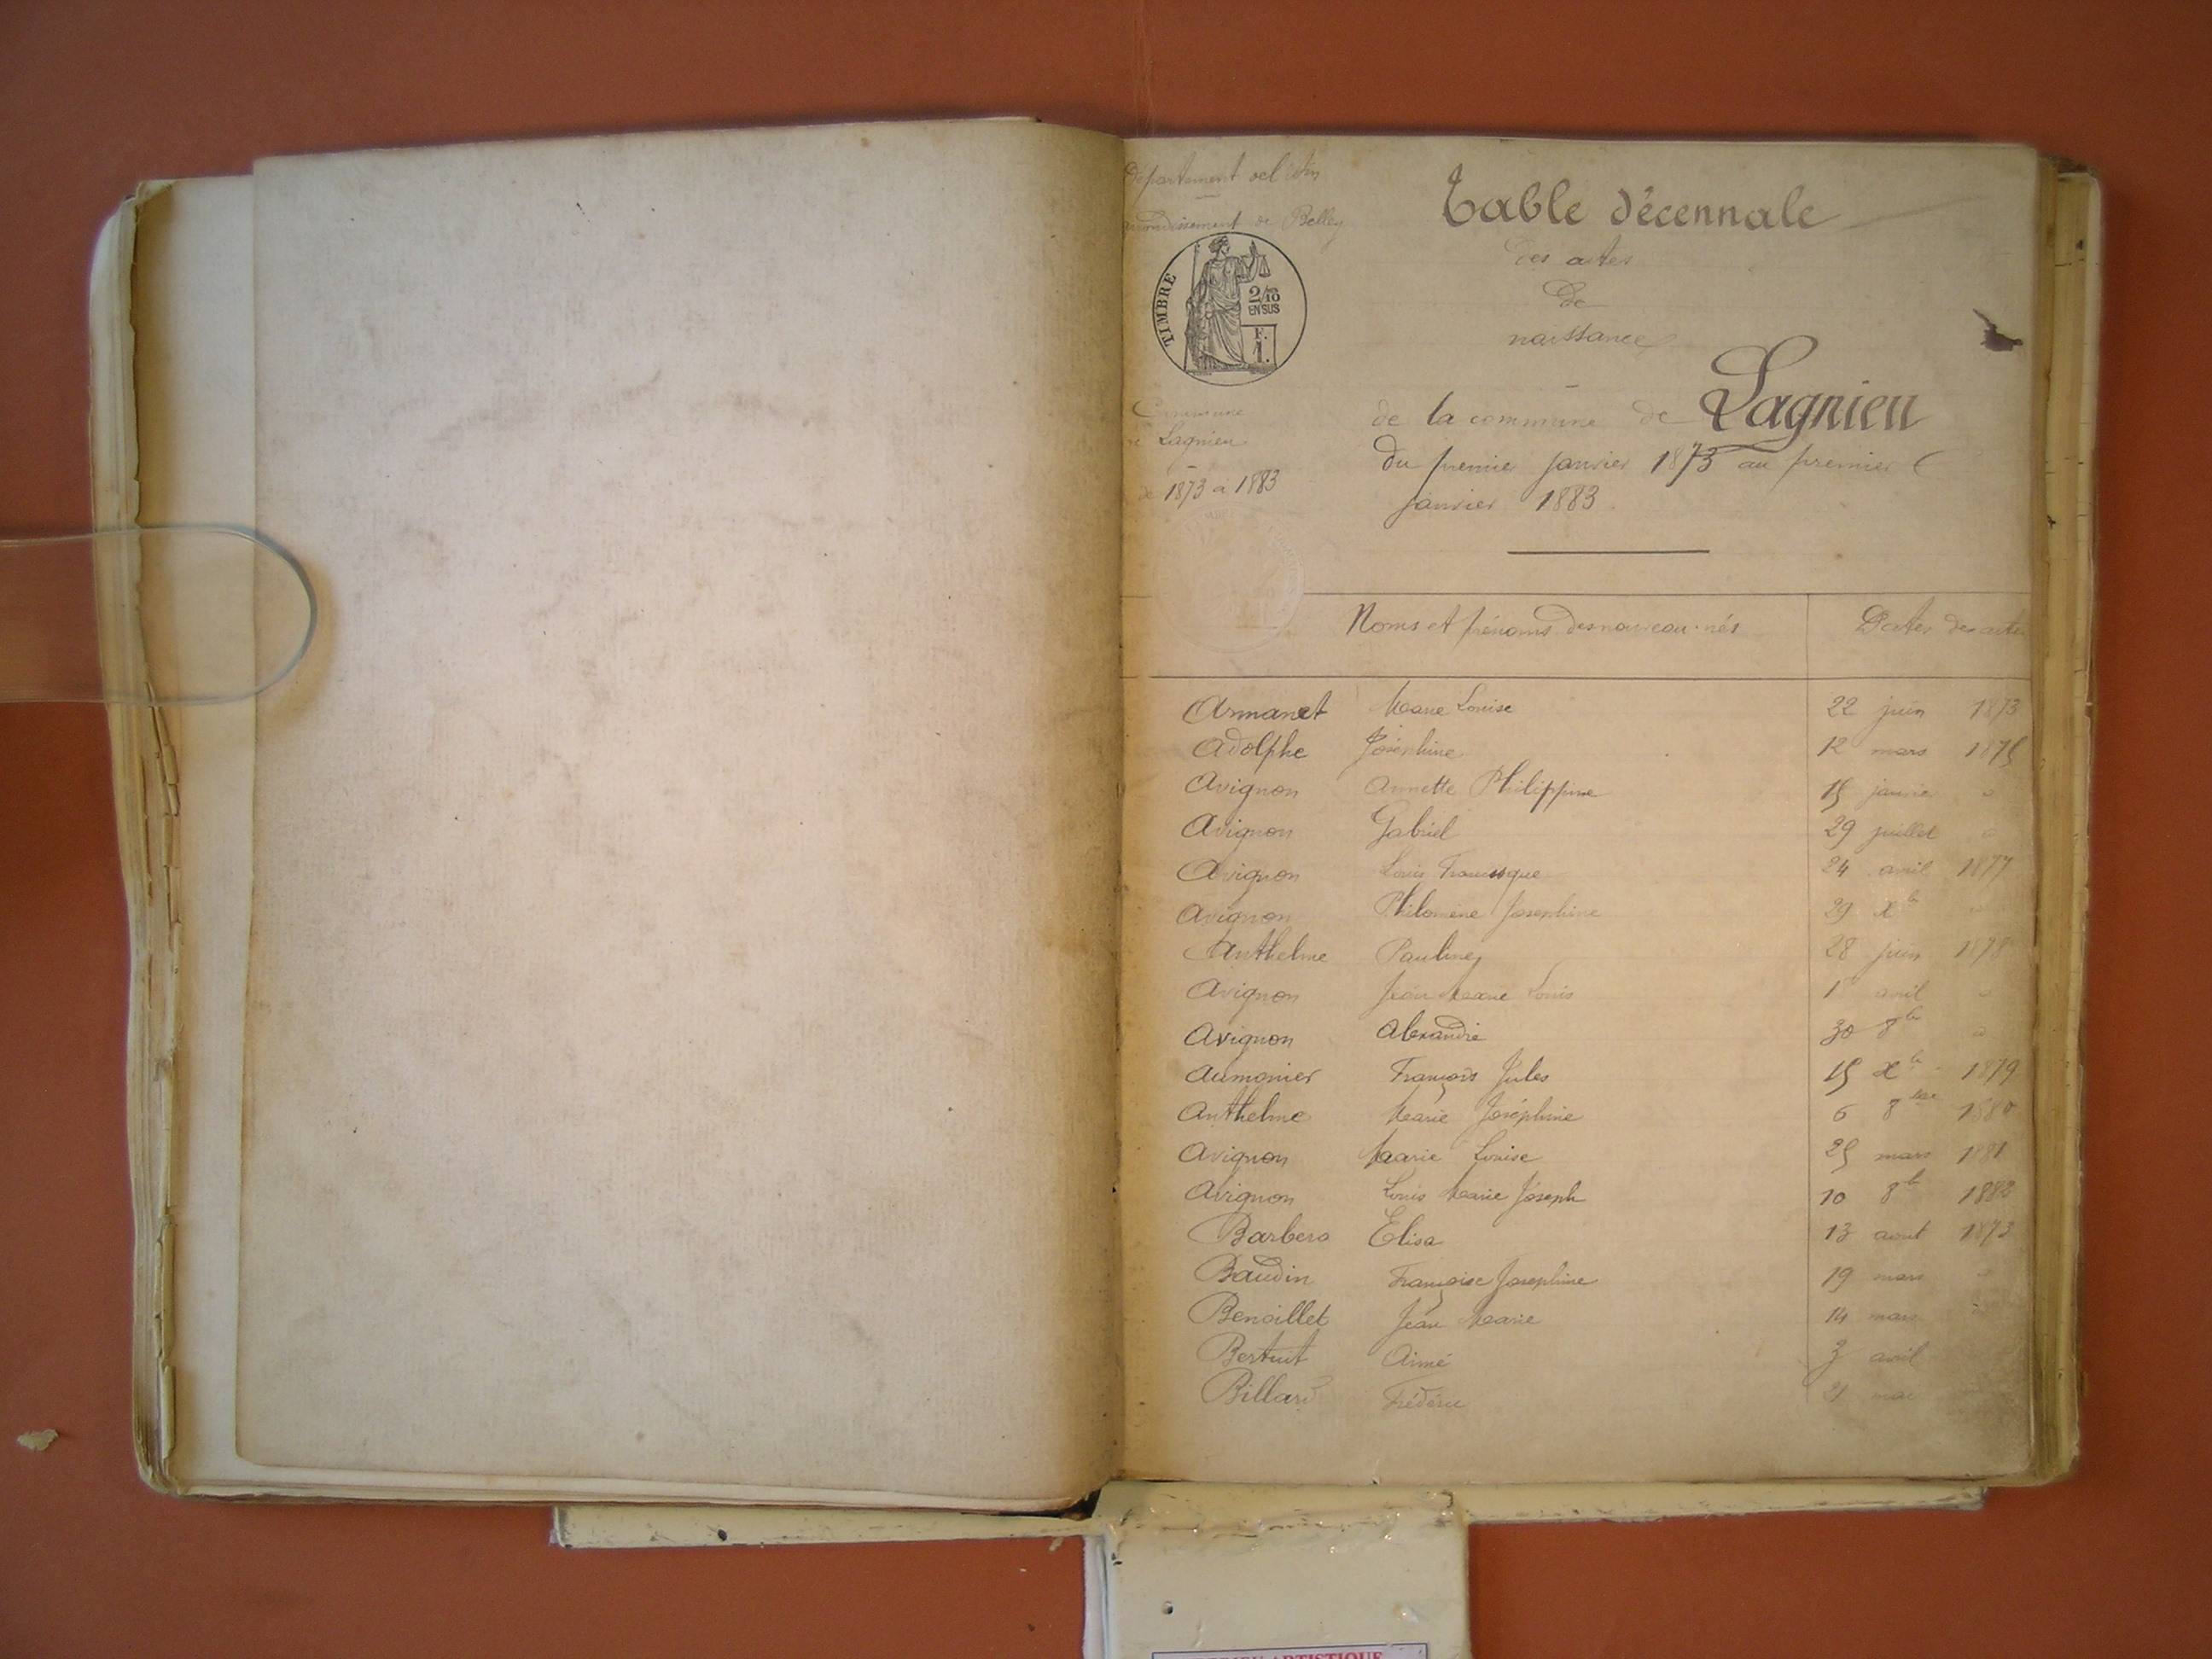 Département de l'Ain
arrondissement de Belley
TIMBRE
2/10
EN SUS
F.
1.
Commune
de Lagnieu
de 1873 a 1883
Table décennale
des actes
de
naissance
de la commune de Lagnieu
du premier janvier 1873 au premier
janvier 1883
Noms et prénoms des nouveau-nés Dates des actes
Armanet Marie Louise 22 juin 1873
Adolphe Joséphine 12 mars 1875
Avignon Annette Philippine 15 janvier "
Avignon Gabriel 29 juillet "
Avignon Louis Francisque 24 avril 1877
Avignon Philomène Josephine 29 Xb "
Anthelme Pauline 28 juin 1878
Avignon Jean Marie Louis 1 avril "
Avignon Alexandre 30 8bre "
Aumonier François Jules 15 Xb 1879
Anthelme Marie Joséphine 6 8bre 1880
Avignon Marie Louise 25 mars 1881
Avignon Louis Marie Joseph 10 8b 1882
Barbero Elisa 13 aout 1873
Baudin Françoise Josephine 19 mars "
Benoillet Jean Marie 14 mars "
Bertrut Aimé 3 avril
Billard Frédéric 21 mai